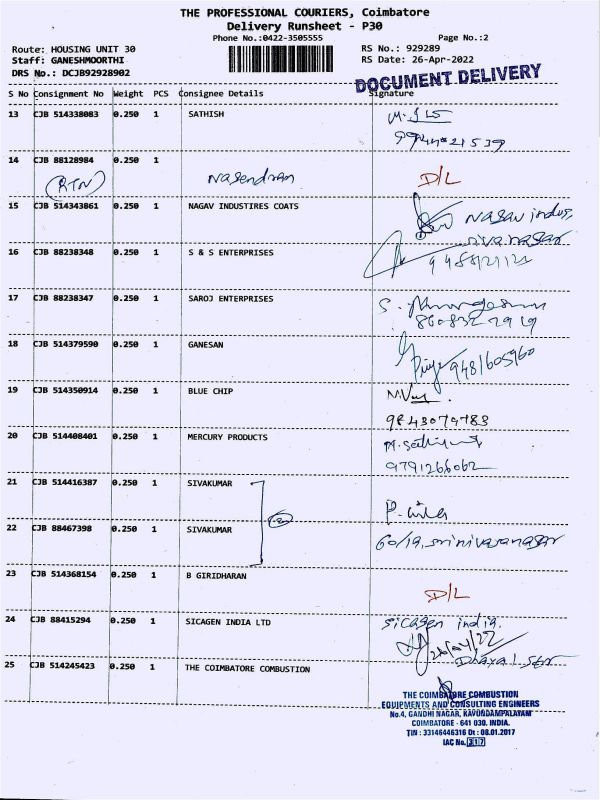 THE PROFESSIONAL COURIERS, Coimbatore
Delivery Runsheet - P30
Phone No.:0422-3505555
Page No.:2
Route: HOUSING UNIT 30
RS No.: 929289
Staff: GANESHMOORTHI
RS Date: 26-Apr-2022
DRS No.: DCJB92928902
DOCUMENT DELIVERY
S No Consignment No Weight PCS Consignee Details Signature
13 CJB 514338083 0.250 1 SATHISH
14 CJB 88128984 0.250 1
(RTN) Nagendran D/L
15 CJB 514343861 0.250 1 NAGAV INDUSTIRES COATS
Nagav indus,
sivanagar
16 CJB 88238348 0.250 1 S & S ENTERPRISES
17 CJB 88238347 0.250 1 SAROJ ENTERPRISES
18 CJB 514379590 0.250 1 GANESAN
9481605960
19 CJB 514350914 0.250 1 BLUE CHIP
9843079783
20 CJB 514408401 0.250 1 MERCURY PRODUCTS
9791266062
21 CJB 514416387 0.250 1 SIVAKUMAR
22 CJB 88467398 0.250 1 SIVAKUMAR
60/19, srinivasanagar
23 CJB 514368154 0.250 1 B GIRIDHARAN
D/L
24 CJB 88415294 0.250 1 SICAGEN INDIA LTD
Sicagen india.
26/04/22
25 CJB 514245423 0.250 1 THE COIMBATORE COMBUSTION
THE COIMBATORE COMBUSTION
EQUIPMENTS AND CONSULTING ENGINEERS
No.4, GANDHI NAGAR, KAVUNDAMPALAYAM
COIMBATORE - 641 030. INDIA.
TIN : 33146446316 Dt : 08.01.2017
IAC No. 317